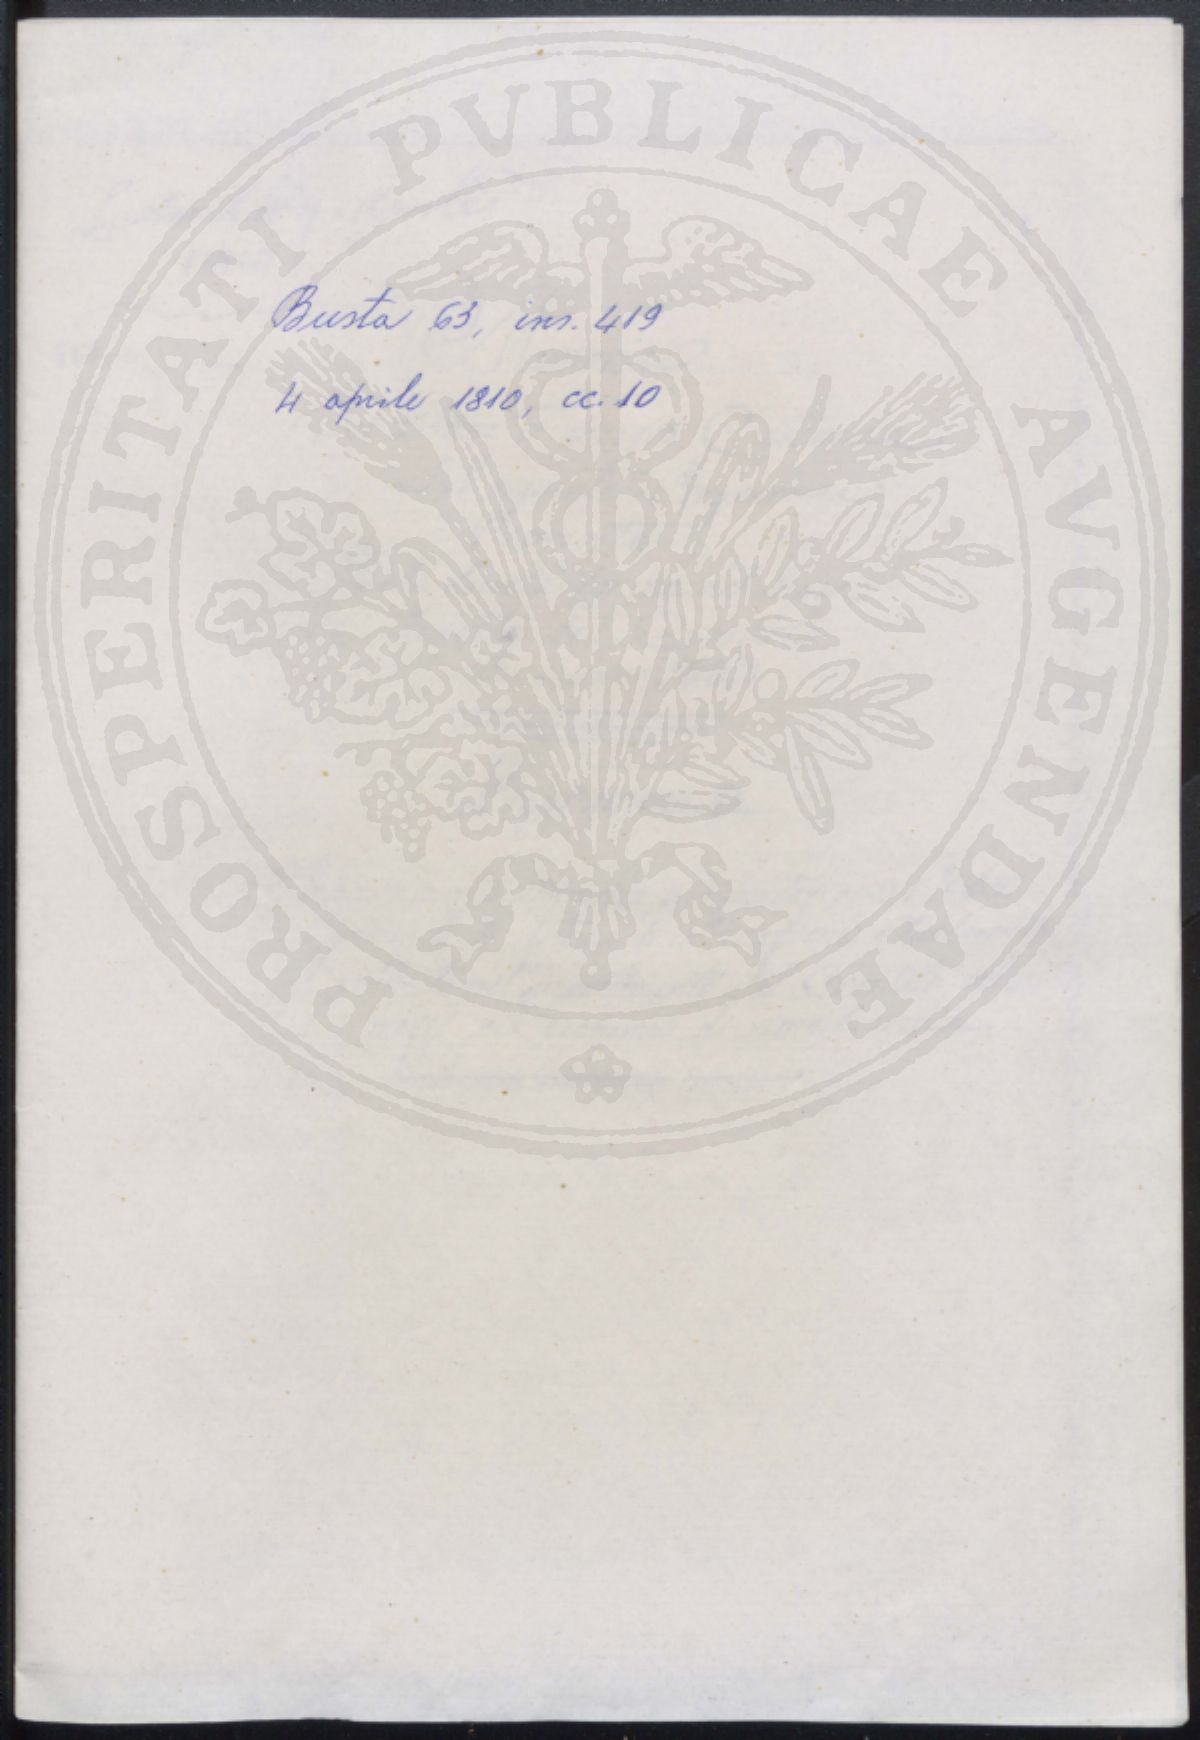 Busta 63, ins. 419
4 aprile 1810, cc. 10
PROSPERITATI PVBLICAE AVGENDAE